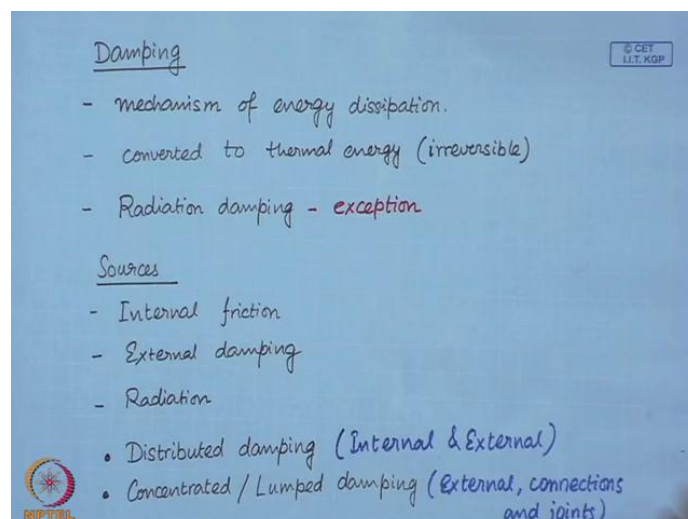 Damping
© CET
I.I.T. KGP
- mechanism of energy dissipation.
- converted to thermal energy (irreversible)
- Radiation damping - exception
Sources
- Internal friction
- External damping
- Radiation
• Distributed damping (Internal & External)
• Concentrated / Lumped damping (External, connections
and joints)
NPTEL